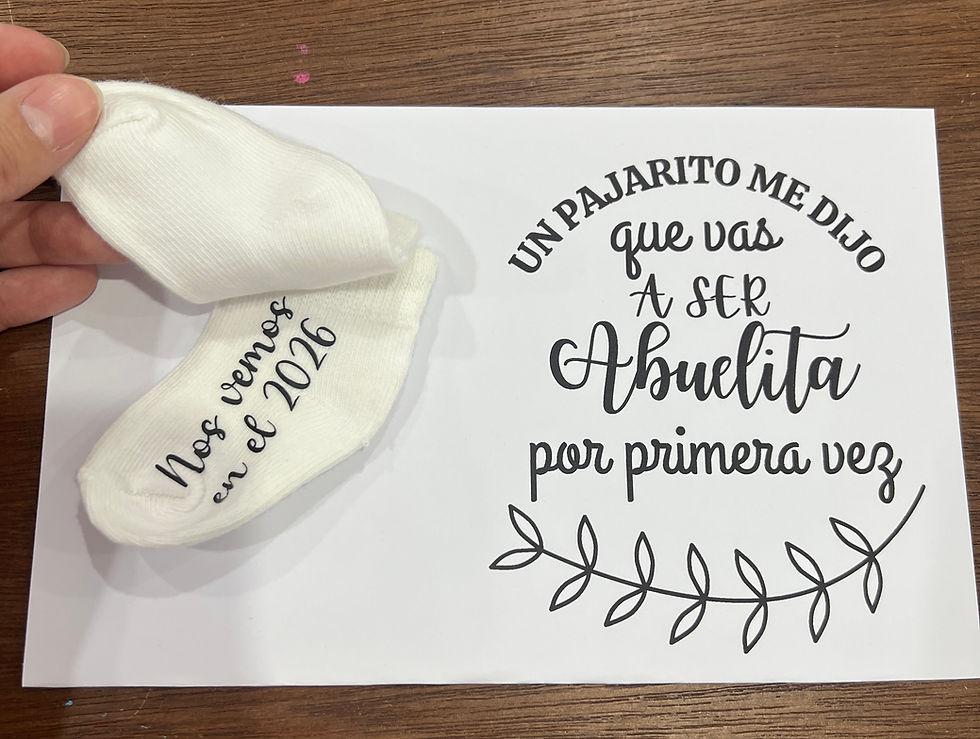 Nos vemos
en el 2026
UN PAJARITO ME DIJO
que vas
A SER
Abuelita
por primera vez